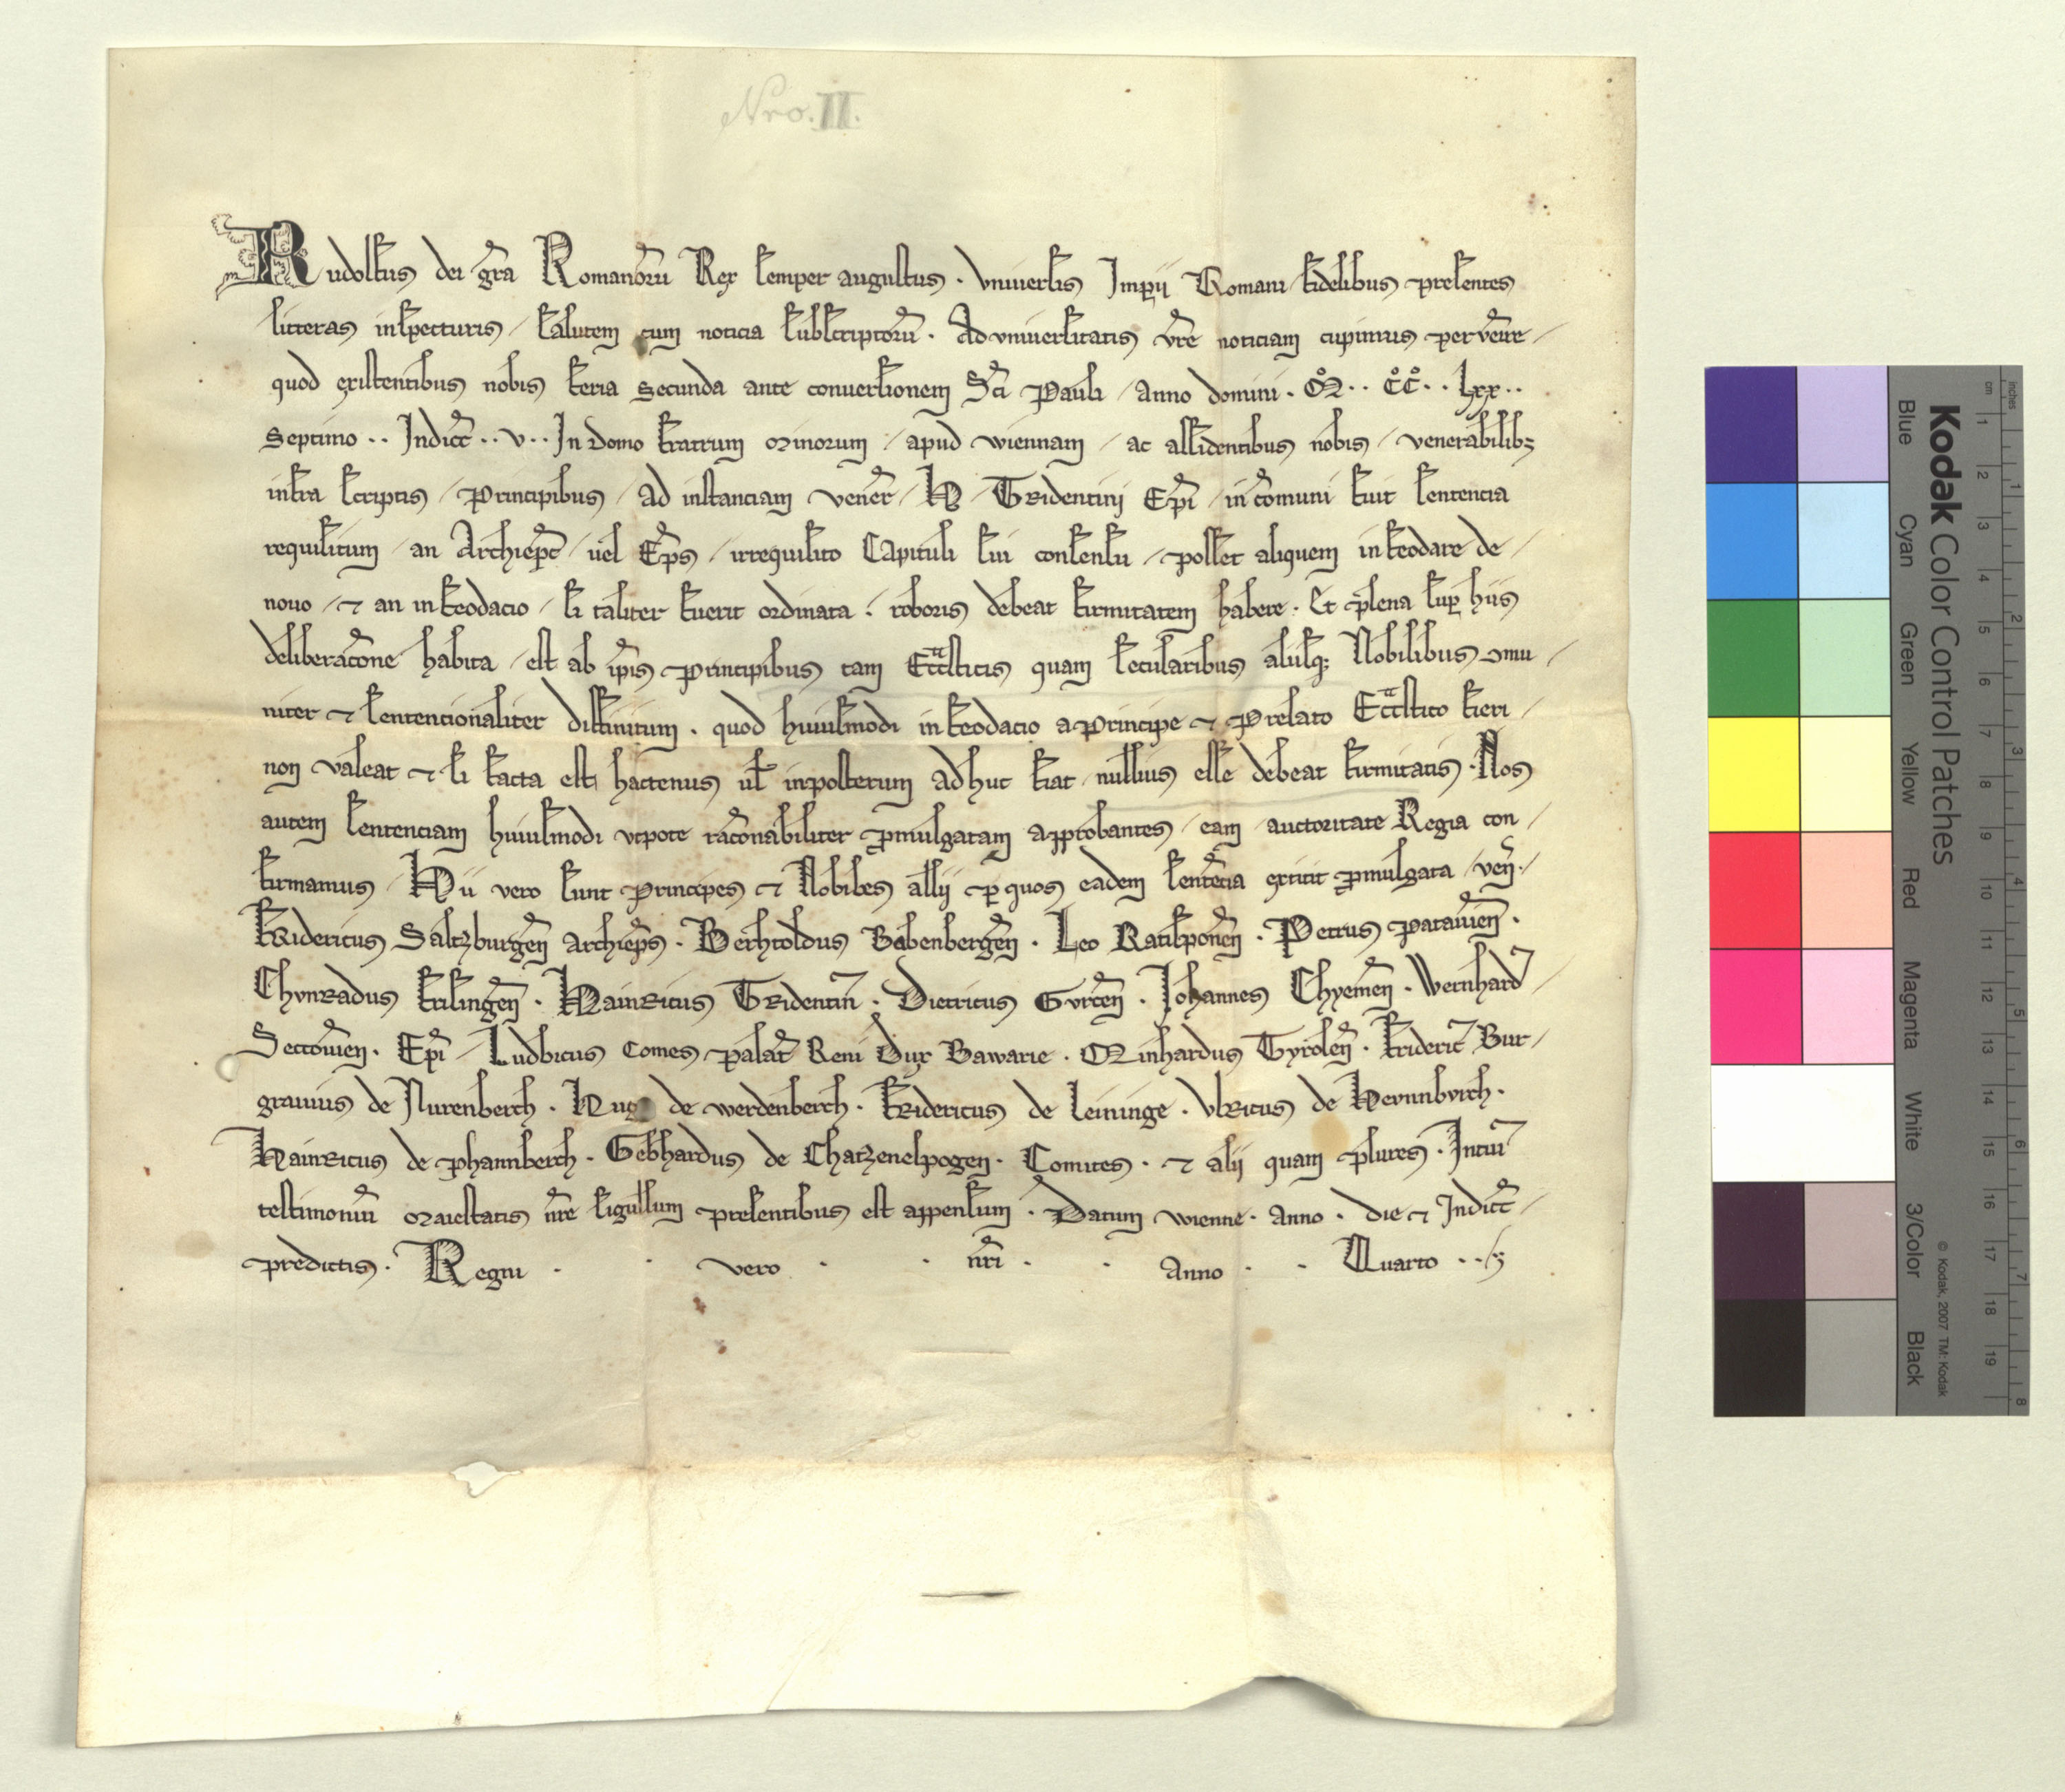 Nro. II.
Rudolfus dei gr̄a Romanor̄u Rex semper augustus . vniuersis Imp̄ii Romani fidelibus presentes
litteras inspecturis / salutem cum noticia subscriptor̄u . Ad vniuersitatis vr̄e noticiam cupimus pervēire /
quod existentibus nobis feria secunda ante conuersionem Sc̄i Pauli / Anno domini . M° . . C°C° . . Lxx . .
septimo . . Indicc̄ . . v . . In domo fratrum minorum / apud wiennam / ac assidentibus nobis / venerabilib;
infra scriptis / principibus / ad instanciam vener̄ / H / Tridentini Ep̄i / in cōmuni fuit sentencia
requisitum / an Archiep̄c / uel Ep̄s / irrequisito Capituli sui consensu / posset aliquem infeodare de /
nouo / ⁊ an infeodacio / si taliter fuerit ordinata / roboris debeat firmitatem habere . Et p̄lena sup̄ hiis
deliberac̄one habita / est ab ip̄is principibus tam Ecc̄asticis quam secularibus aliisq; Nobilibus ꝯmu /
niter ⁊ sentencionaliter diffinitum . quod huiusmodi infeodacio a principe ⁊ Prelato Ecc̄astico fieri /
non valeat ⁊ si facta est hactenus ul̄ inposterum adhuc fiat nullius esse debeat firmitatis . Nos
autem sentenciam huiusmodi vtpote rac̄onabiliter ꝓmulgatam approbantes / eam auctoritate Regia con /
firmamus / Hii vero sunt principes ⁊ Nobiles alii / ꝑ quos eadem senten̄cia extitit ꝓmulgata / ven̄ . /
Fridericus Saltzburgen̄ archiep̄s . Berhtoldus Babenbergen̄ . Leo Ratisponen̄ . Petrus patauien̄ .
Chvnradus frisingen̄ . Hainricus Tridentin̄ . Dietricus Gvrcen̄ . Johannes Chyemen̄ . Wernhard᷒ /
Seccouien̄ . Ep̄i / Ludbicus Comes palat̄ Reni Dux Bawarie . Minhardus Tyrolen̄ . frideric̄ Bur /
grauius de Nurenberch . Hugo de werdenberch . Fridericus de leininge . Vlricus de Hevnnbvrch .
Hainricus de phannberch . Gebhardus de Chatzenelpogen . Comites . ⁊ alij quam plures . In cui᷒
testimoniū maiestatis nr̄e sigillum presentibus est appensum . Datum wienne . anno . die ⁊ Indicc̄ /
predictis . Regni . . vero . . nr̄i . . Anno . . Quarto . .
Kodak Color Control Patches
Blue Cyan Green Yellow Red Magenta White 3/Color Black
© Kodak, 2007 TM: Kodak
cm 1 2 3 4 5 6 7 8 9 10 11 12 13 14 15 16 17 18 19
inches 1 2 3 4 5 6 7 8